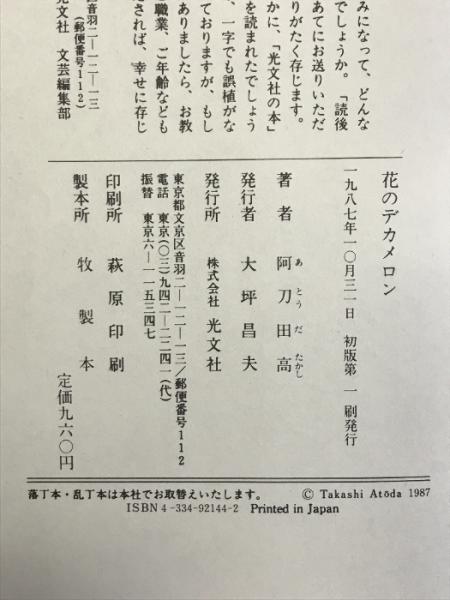 みになって、どんな
でしょうか。「読後
あてにお送りいただ
りがたく存じます。
かに、「光文社の本」
を読まれたでしょう
、一字でも誤植がな
ておりますが、もし
ありましたら、お教
職業、ご年齢なども
されば、幸せに存じ
音羽二―一二―一三
(郵便番号112)
光文社 文芸編集部
花のデカメロン
一九八七年一〇月三一日 初版第一刷発行
著者 阿刀田高
あとうだたかし
発行者 大坪昌夫
発行所 株式会社 光文社
東京都文京区音羽二―一二―一三/郵便番号112
電話 東京(〇三)九四二―二二四一(代)
振替 東京六―一一五三四七
印刷所 萩原印刷
製本所 牧製本
定価九六〇円
落丁本・乱丁本は本社でお取替えいたします。
© Takashi Atōda 1987
ISBN4-334-92144-2 Printed in Japan